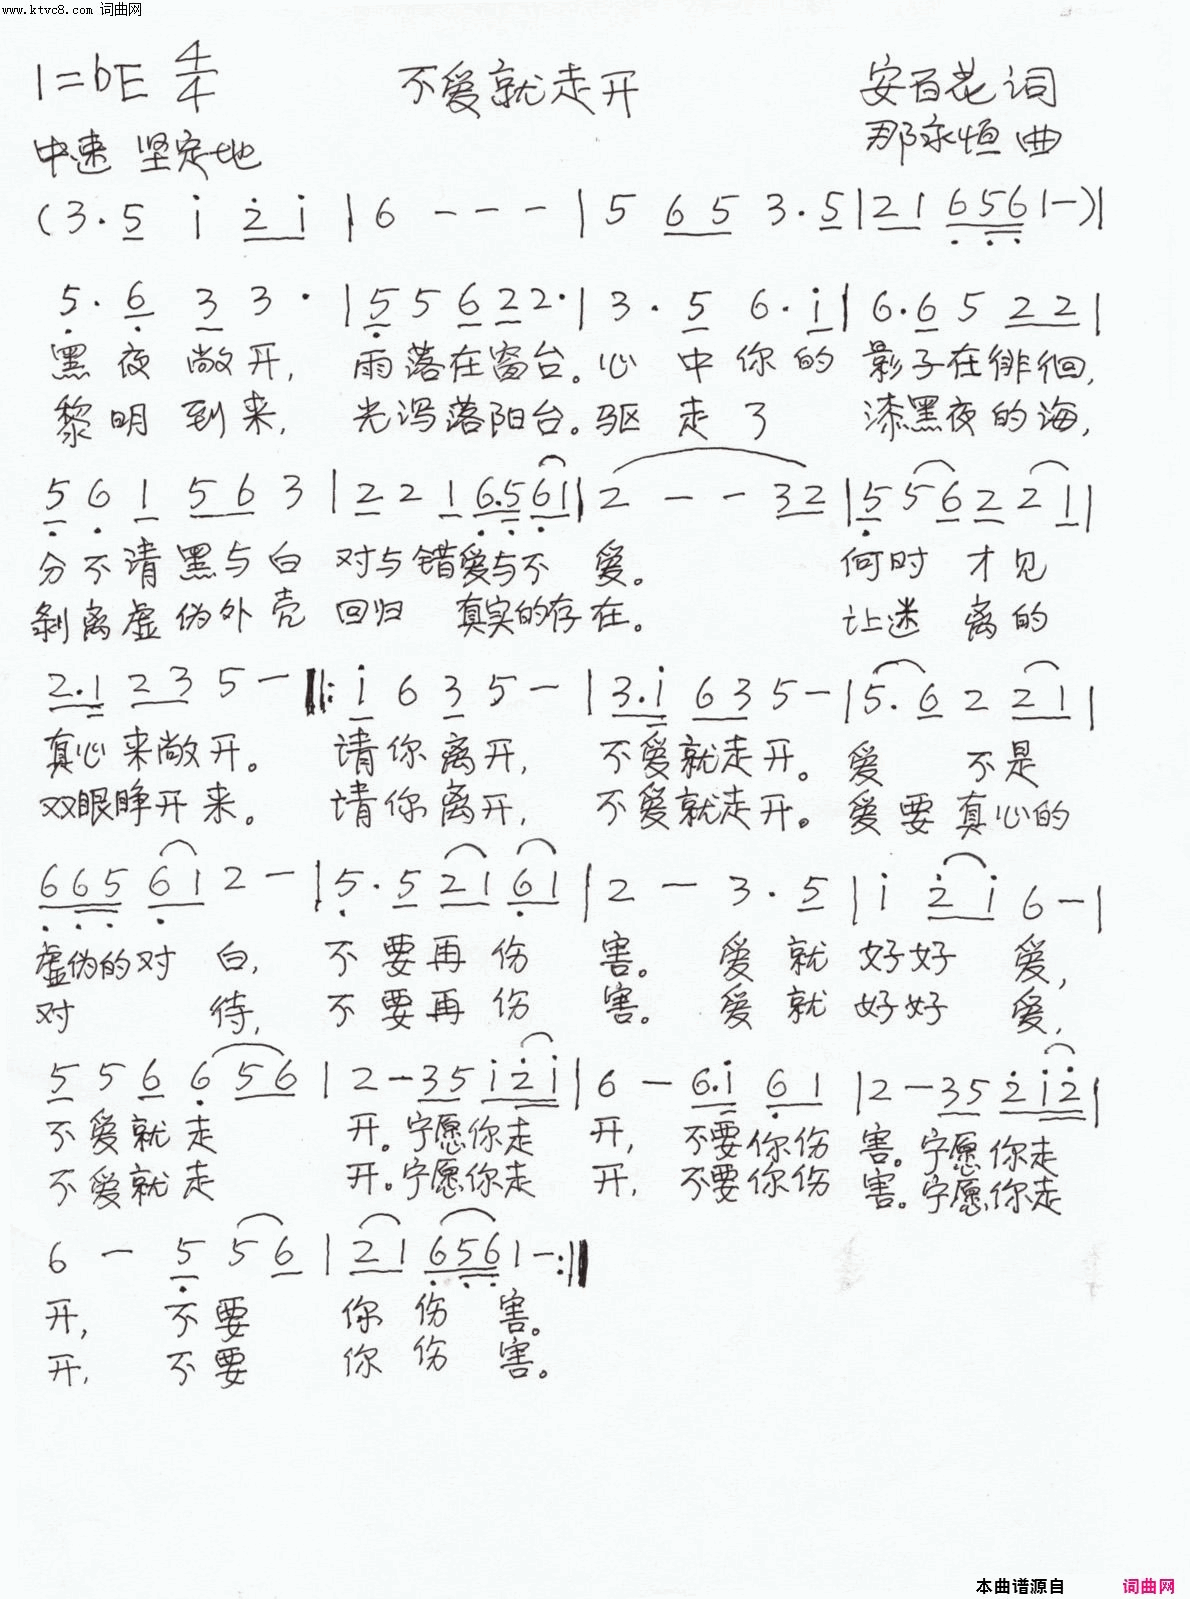 www.ktvc8.com 词曲网
1=bE 4/4 不爱就走开 安百花词
中速 坚定地 那永恒曲
(3·5 i 2 i | 6 - - - | 5 6 5 3·5 | 2 1 6 5 6 1 -)|
5·6 3 3· | 5 5 6 2 2· | 3·5 6·i | 6·6 5 2 2 |
黑夜敞开, 雨落在窗台。心中你的影子在徘徊,
黎明到来, 光泻落阳台。驱走了漆黑夜的海,
5 6 1 5 6 3 | 2 2 1 6·5 6 1 | 2 - - 3 2 | 5 5 6 2 2 1 |
分不清黑与白 对与错爱与不爱。 何时才见
剥离虚伪外壳 回归 真实的存在。 让迷离的
2·1 2 3 5 - ‖: i 6 3 5 - | 3·i 6 3 5 - | 5·6 2 2 1 |
真心来敞开。 请你离开, 不爱就走开。爱 不是
双眼睁开来。 请你离开, 不爱就走开。爱要真心的
6 6 5 6 1 2 - | 5·5 2 1 6 1 | 2 - 3·5 | i 2 i 6 - |
虚伪的对白, 不要再伤害。 爱就好好爱,
对待, 不要再伤害。 爱就好好爱,
5 5 6 6 5 6 | 2 - 3 5 i 2 i | 6 - 6·i 6 1 | 2 - 3 5 2 i 2 |
不爱就走开。宁愿你走开, 不要你伤害。宁愿你走
不爱就走开。宁愿你走开, 不要你伤害。宁愿你走
6 - 5 5 6 | 2 1 6 5 6 1 - :‖
开, 不要你伤害。
开, 不要你伤害。
本曲谱源自 词曲网